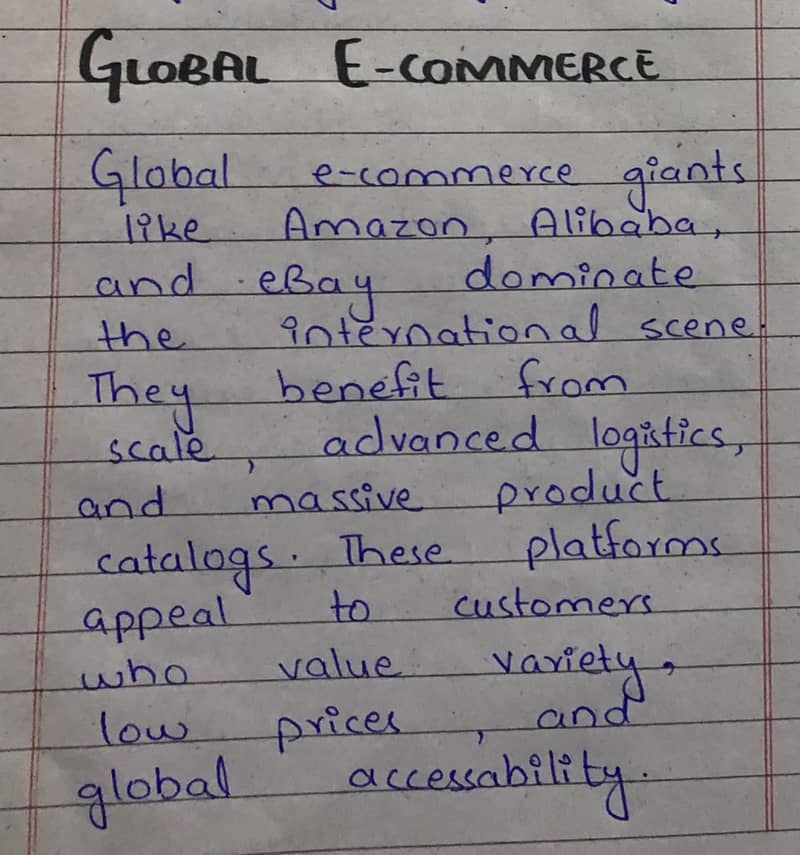 GLOBAL E-COMMERCE
Global e-commerce giants
like Amazon, Alibaba,
and eBay dominate
the international scene.
They benefit from
scale, advanced logistics,
and massive product
catalogs. These platforms
appeal to customers
who value variety,
low prices, and
global accessability.